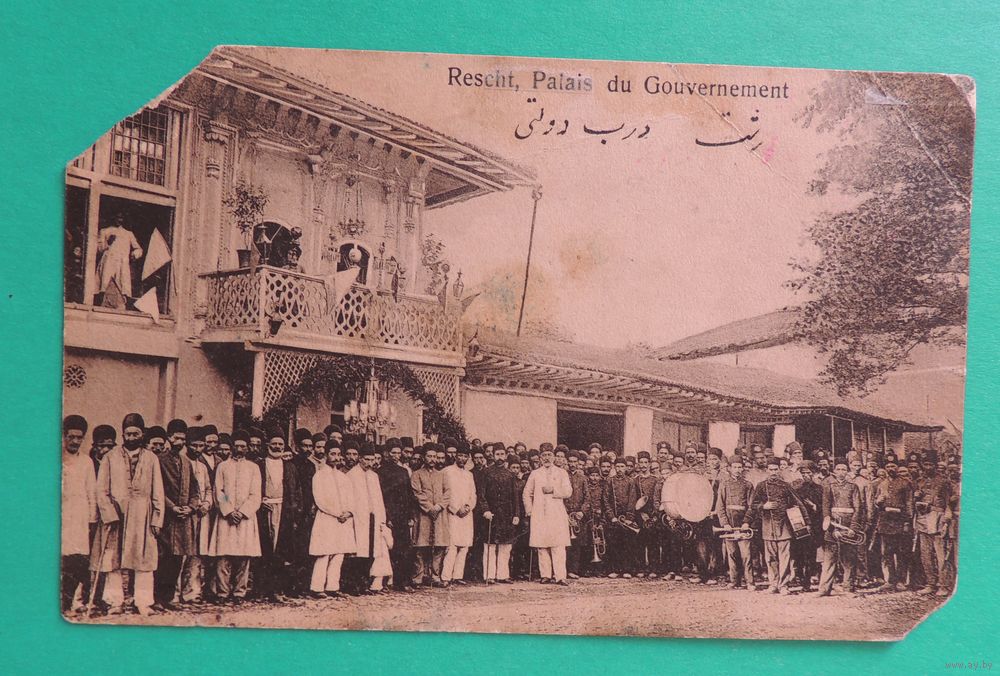 Rescht, Palais du Gouvernement
رشت درب دولتی
www.ay.by